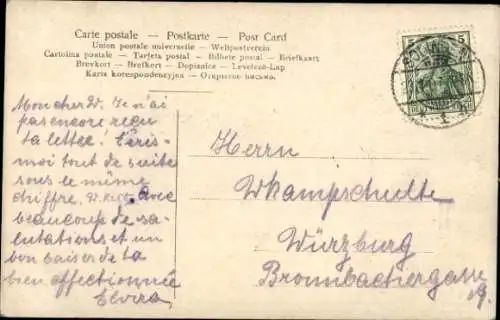 Carte postale – Postkarte – Post Card
Union postale universelle – Weltpostverein
Cartolina postale – Tarjeta postal – Bilhete postal – Briefkaart
Brevkort – Brefkort – Dopisnice – Levelezö-Lap
Karta korespondencyjna – Открытое письмо.
5
Mon cher W. Je n'ai
pas encore reçu
ta lettre! Écris-
moi tout de suite
sous le même
chiffre, avec
beaucoup de sa-
lutations et un
bon baiser de ta
bien affectionnée
Elvira
Herrn
W Kampschulte
Würzburg
Brombachergasse